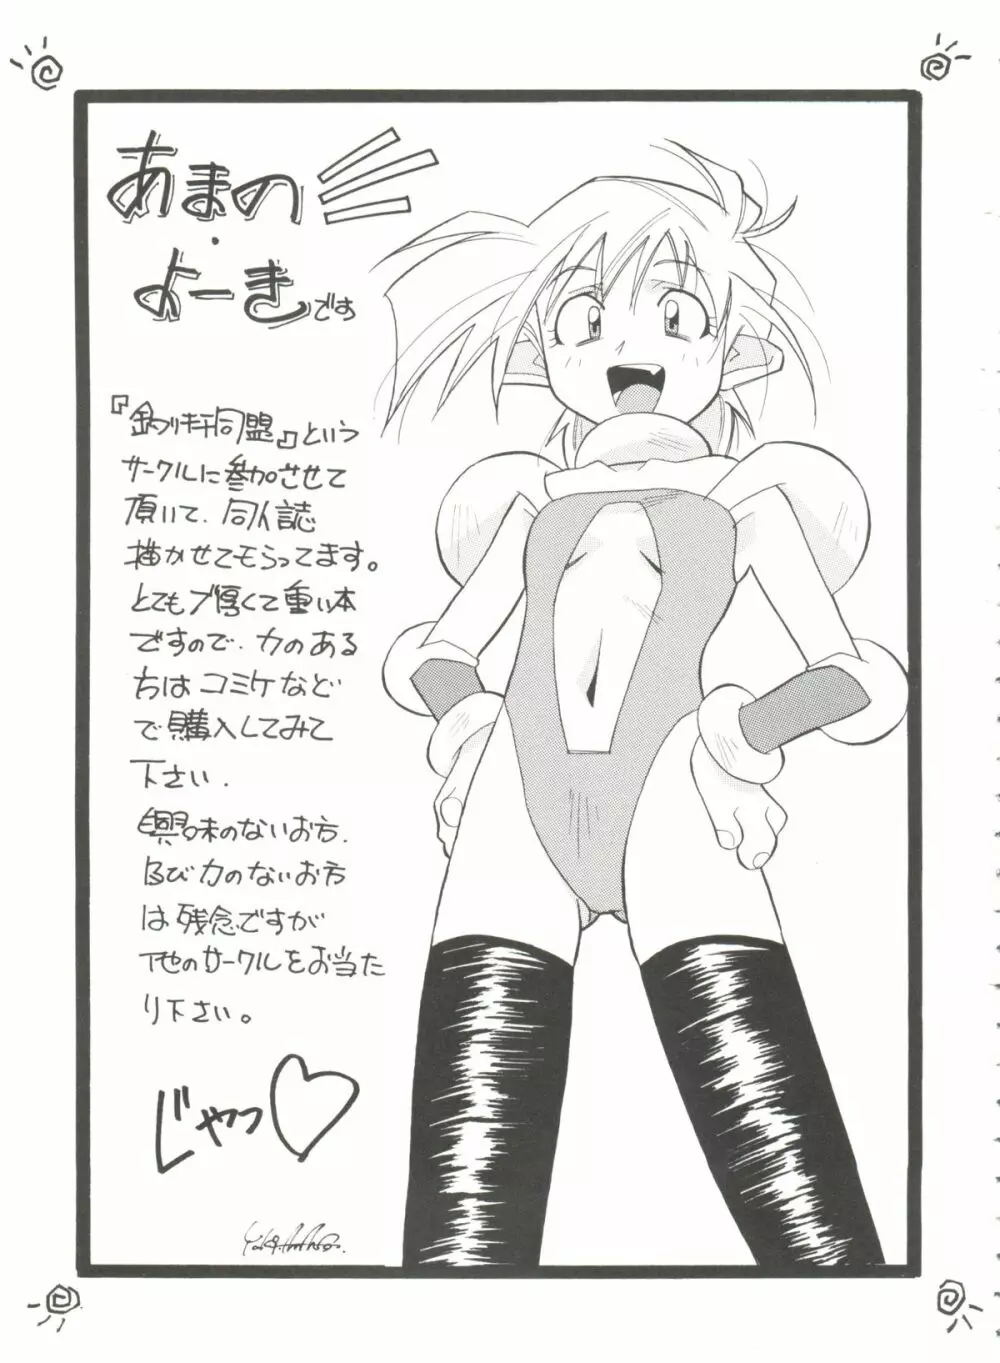 あまの
・
よーき です
『釣りキチ同盟』という
サークルに参加させて
頂いて、同人誌
描かせてもらってます。
とてもブ厚くて重い本
ですので、力のある
方はコミケなど
で購入してみて
下さい.
興味のないお方.
及び力のないお方
は残念ですが
他のサークルをお当た
り下さい。
じゃっ♡